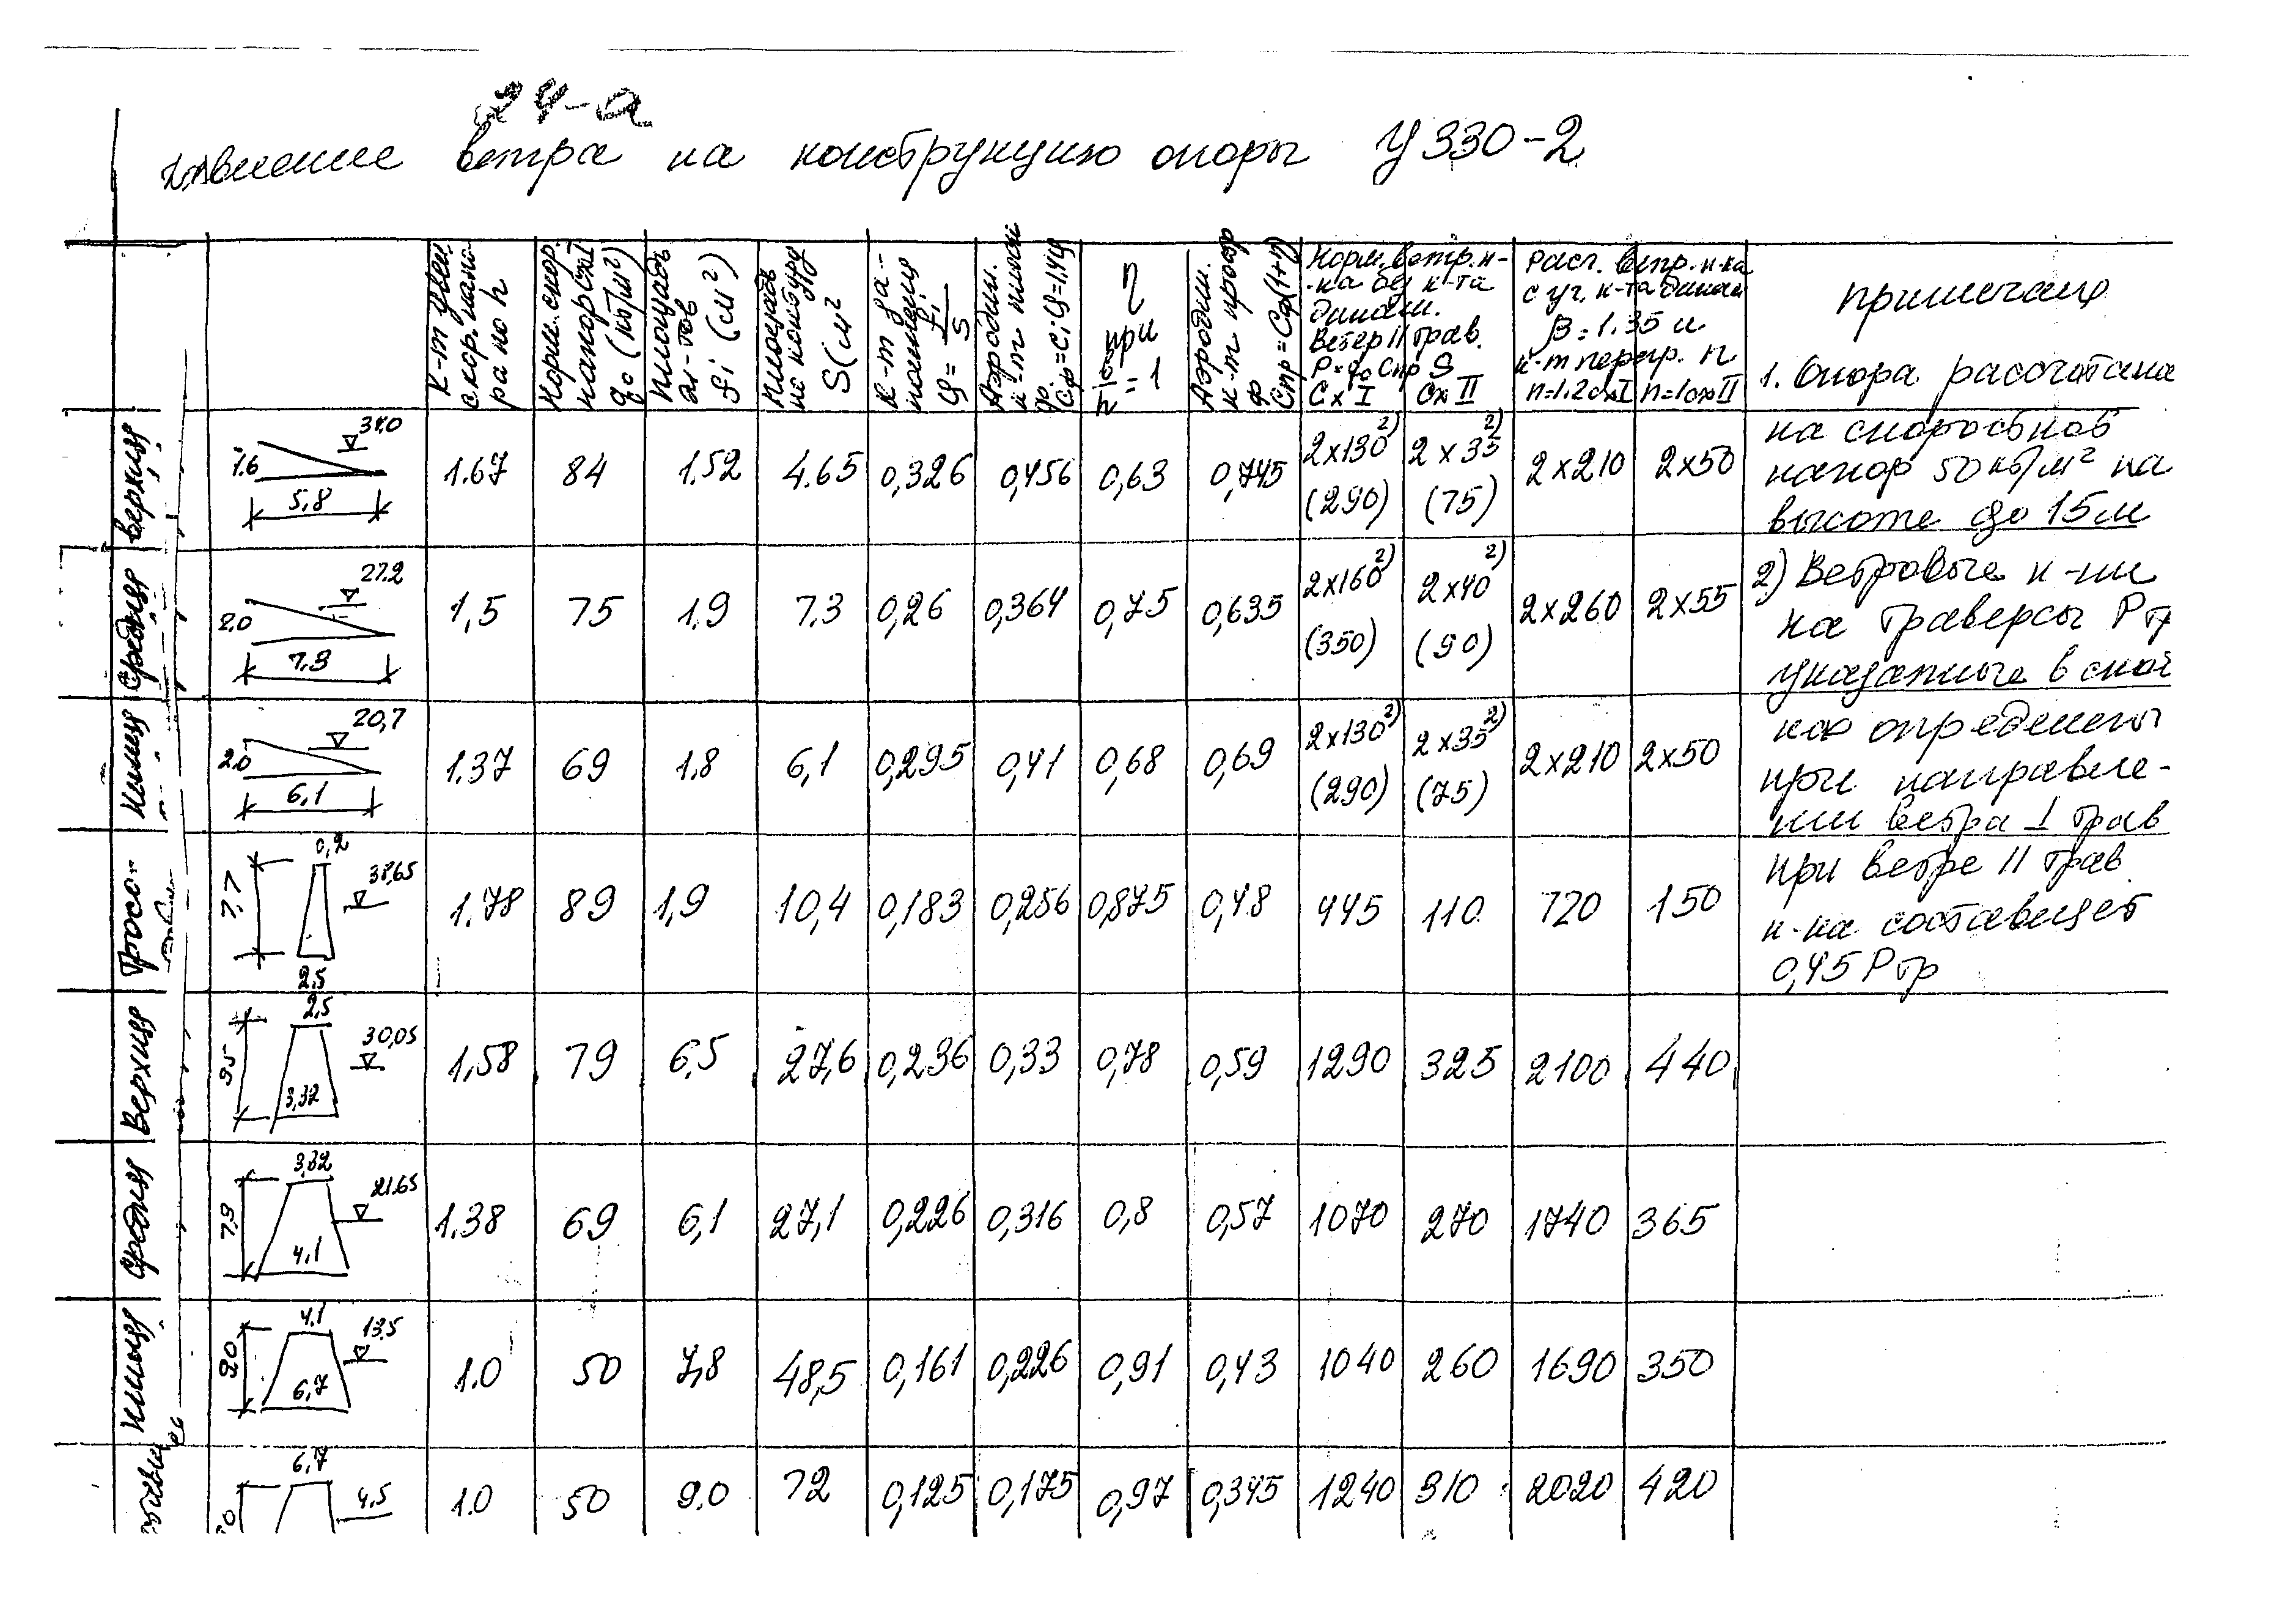 24-а
ветра на конструкцию опоры У330-2
К-т увел. скор. напора по h
Норм. скор. напор (СхI) q₀ (кг/м²)
Площадь эл-тов fi (м²)
Площадь по контуру S (м²
К-т заполнения φ = fi/S
Аэродин. к-т плоск. ф. Сф=Ciφ=1.4φ
η при b/h = 1
Аэродин. к-т простр ф. Спр=Сф(1+η)
Норм. ветр. н-ка без к-та динам. Ветер II трав. P=q₀ Спр S
Сх I
Сх II
Расч. ветр. н-ка с уч. к-та динам β=1.35 и к-т перегр. n
n=1.2 сх I
n=1.0 сх II
примечания
верхняя 1.6 5,8 34.0 1.67 84 1.52 4.65 0,326 0,456 0,63 0,745 2x130²⁾ (290) 2x35²⁾ (75) 2x210 2x50
Средняя 2.0 7.3 27.2 1,5 75 1.9 7.3 0,26 0,364 0,75 0,635 2x160²⁾ (350) 2x40²⁾ (90) 2x260 2x55
Нижняя 2.0 6.1 20,7 1.37 69 1.8 6,1 0,295 0,41 0,68 0,69 2x130²⁾ (290) 2x35²⁾ (75) 2x210 2x50
Тросо- 7,7 0,2 2.5 38,65 1.78 89 1,9 10,4 0,183 0,256 0,875 0,48 445 110 720 150
Верхняя 9.5 2,5 3,32 30,05 1,58 79 6,5 27,6 0,236 0,33 0,78 0,59 1290 325 2100 440
Средняя 7.3 3,32 4.1 21.65 1.38 69 6,1 27,1 0,226 0,316 0,8 0,57 1070 270 1740 365
Нижняя 9.0 4.1 6.7 13.5 1.0 50 7,8 48,5 0,161 0,226 0,91 0,43 1040 260 1690 350
6,7 4,5 1.0 50 9.0 72 0,125 0,175 0,97 0,345 1240 310 2020 420
1. Опора рассчитана
на скоростной
напор 50 кг/м² на
высоте до 15м
2) Ветровые н-ки
на траверсы Pтр
указанные в скоб
ках определены
при направле-
нии ветра ⊥ трав
при ветре II трав
н-ка составляет
0,45 Pтр